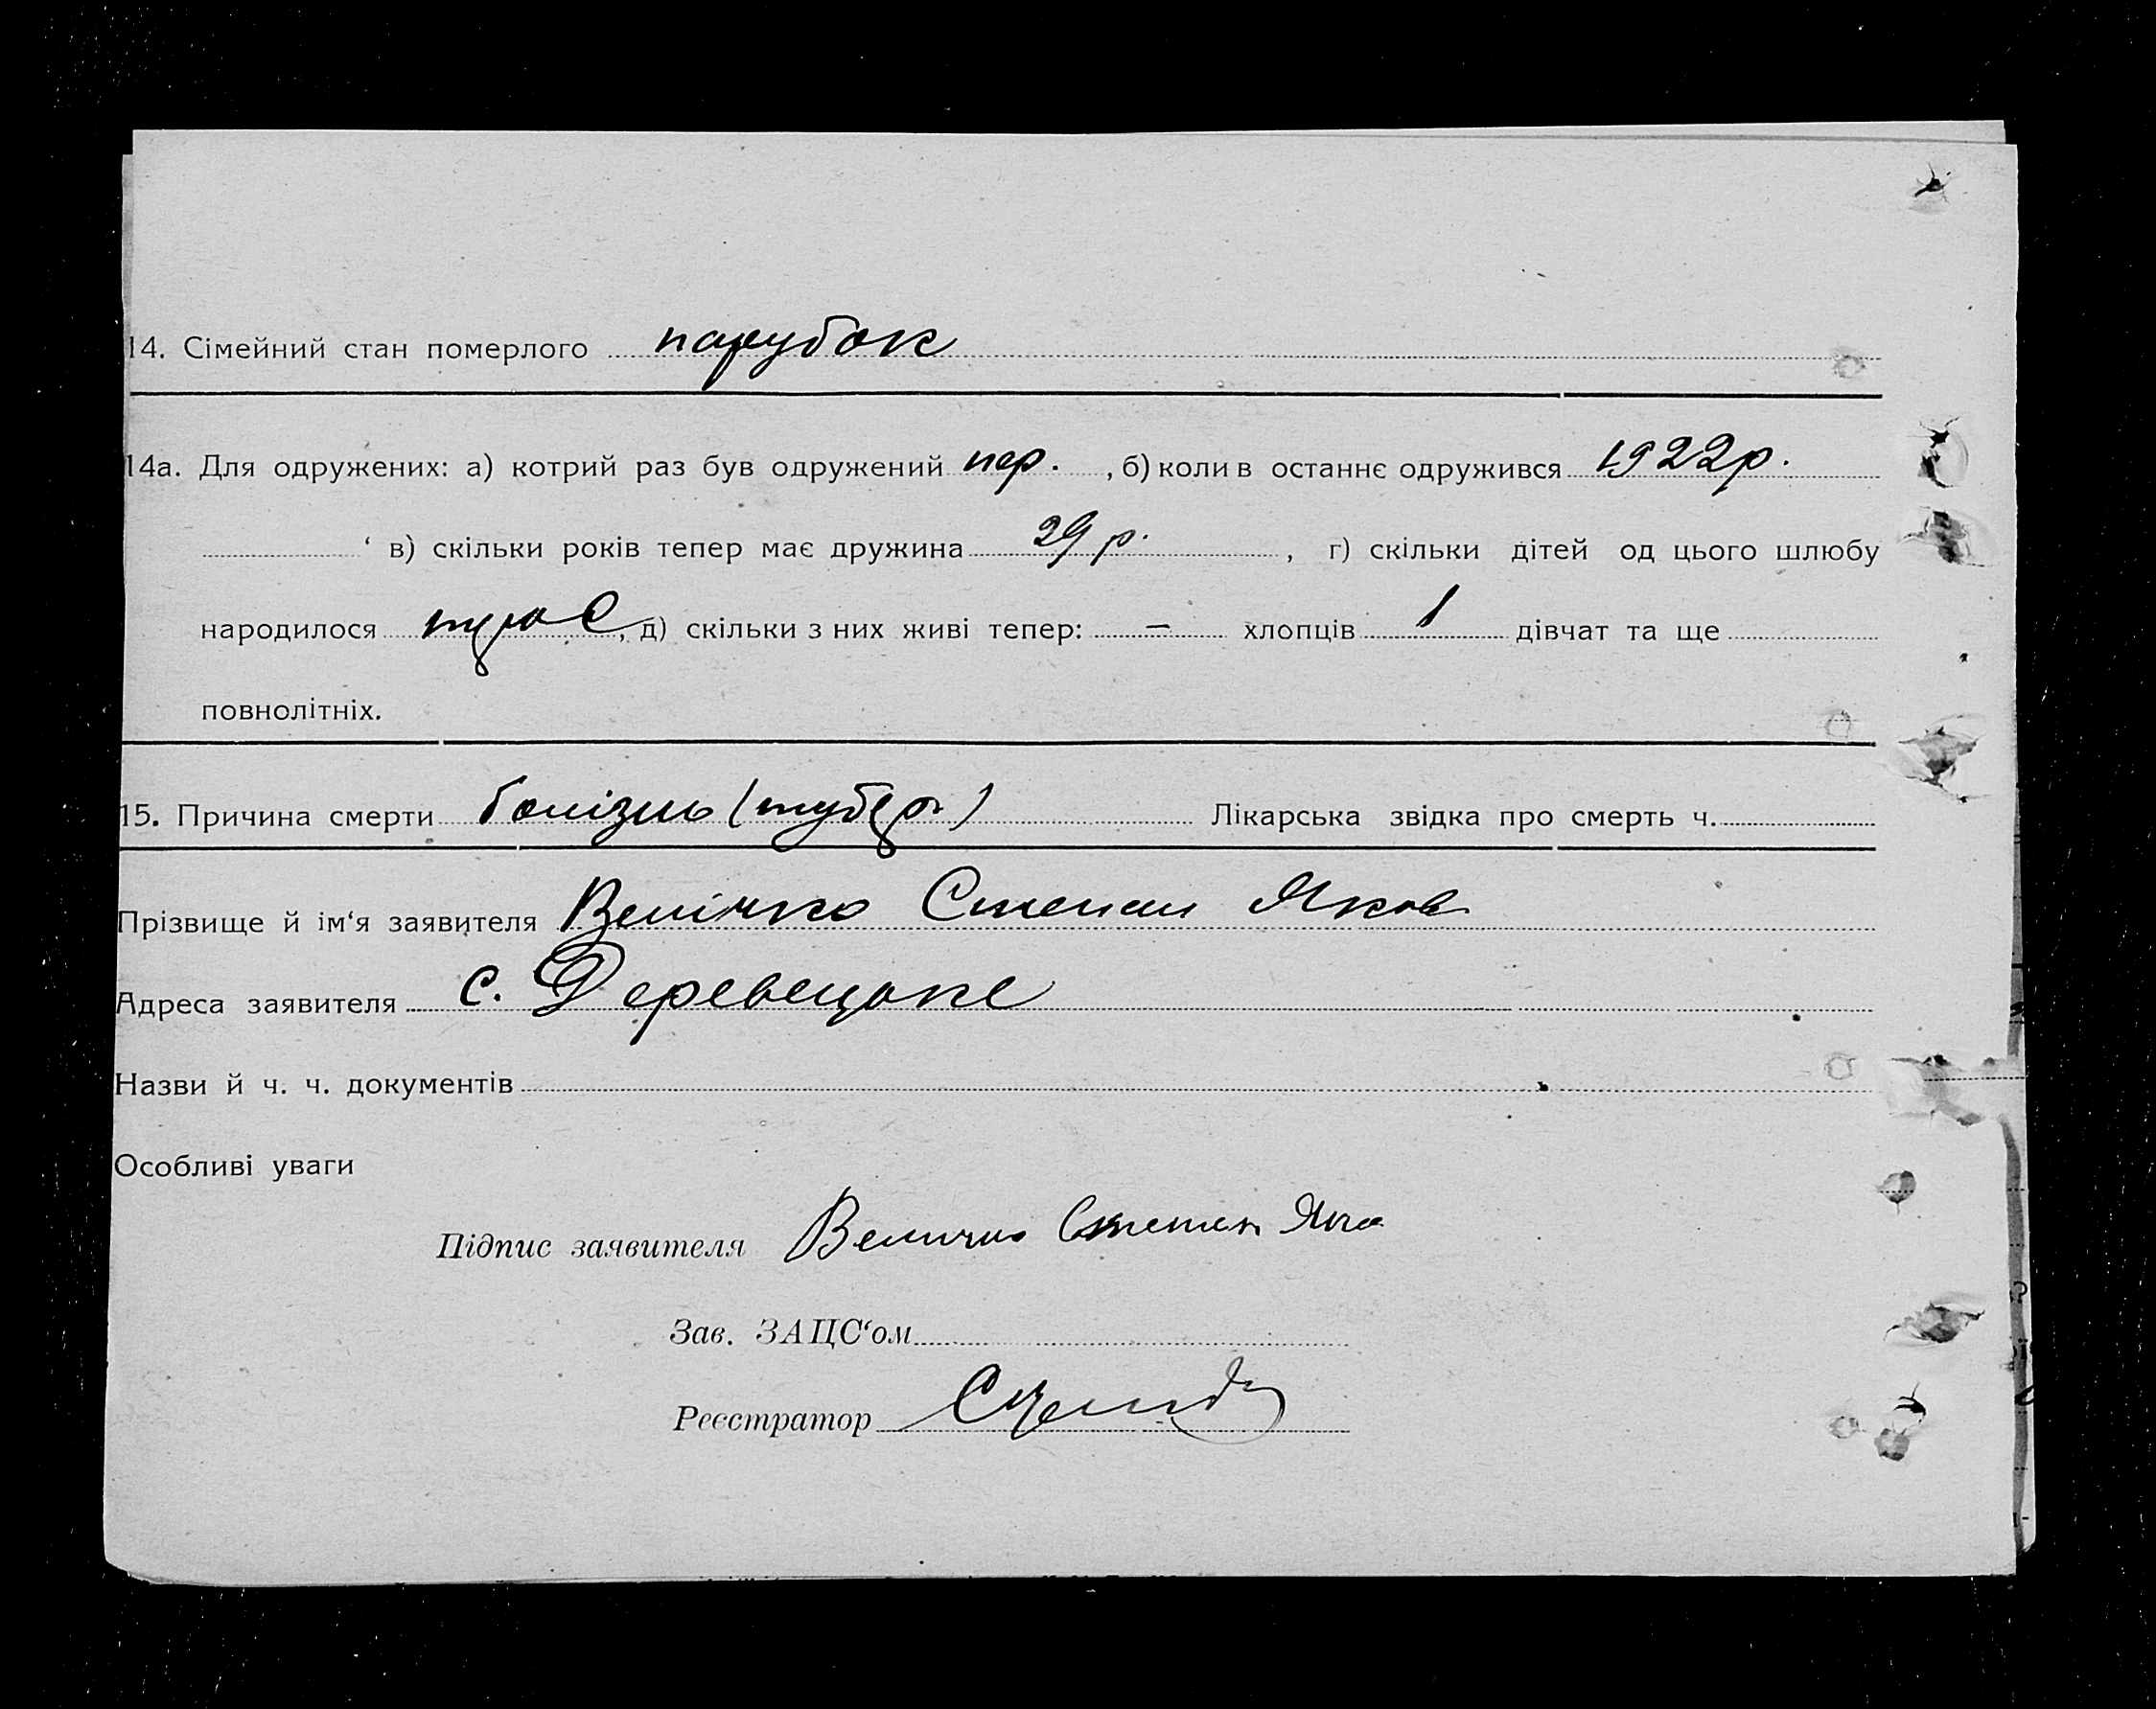 14. Сімейний стан померлого парубок
14а. Для одружених: а) котрий раз був одружений пер. , б) коли в останнє одружився 1922р.
в) скільки років тепер має дружина 29 р. , г) скільки дітей од цього шлюбу
народилося троє, д) скільки з них живі тепер: — хлопців 1 дівчат та ще
повнолітніх.
15. Причина смерти болізнь (тубер) Лікарська звідка про смерть ч.
Прізвище й ім‘я заявителя Велічко Степан Яков
Адреса заявителя с. Деревецьке
Назви й ч. ч. документів
Особливі уваги
Підпис заявителя Величко Степан Яко
Зав. ЗАЦС‘ом
Реєстратор